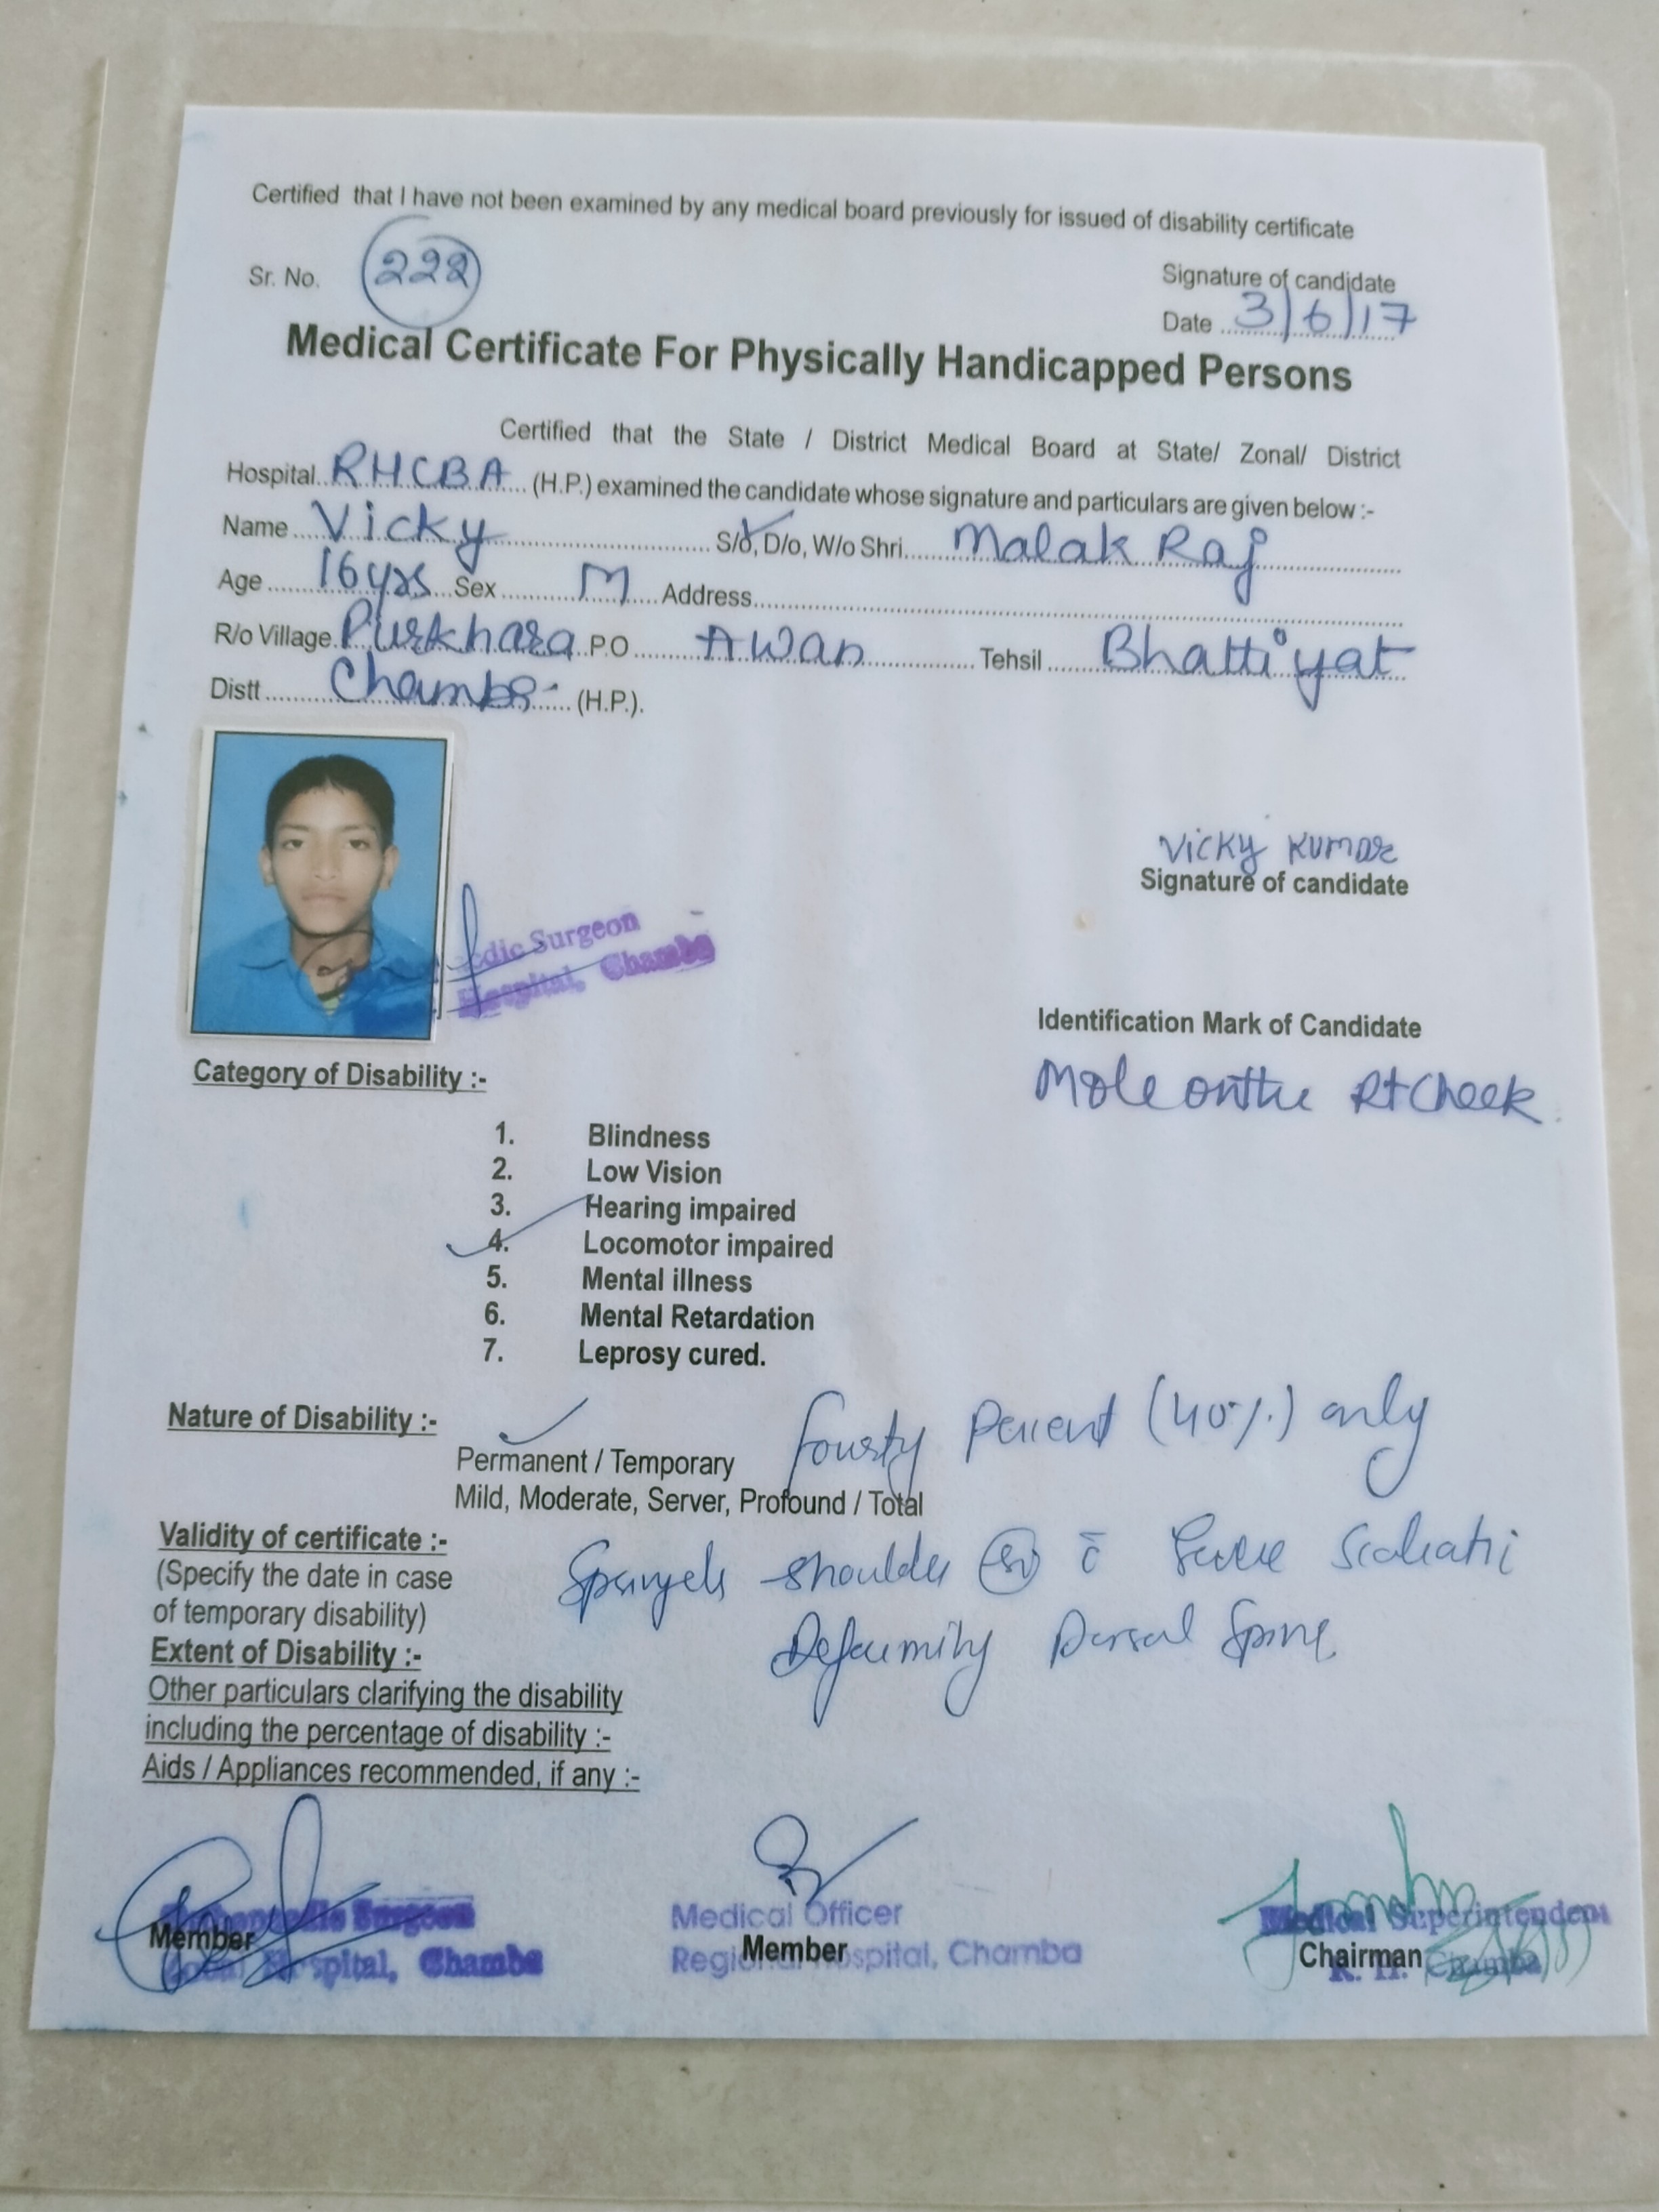 Certified that I have not been examined by any medical board previously for issued of disability certificate
Sr. No. 222
Signature of candidate
Date 3/6/17
Medical Certificate For Physically Handicapped Persons
Certified that the State / District Medical Board at State/ Zonal/ District
Hospital RHCBA (H.P.) examined the candidate whose signature and particulars are given below :-
Name Vicky S/o, D/o, W/o Shri Malak Raj
Age 16 yrs Sex M Address
R/o Village Purkhara P.O Awan Tehsil Bhattiyat
Distt Chamba (H.P.).
Vicky Kumar
Signature of candidate
Surgeon
Hospital, Chamba
Identification Mark of Candidate
Mole on the Rt Cheek
Category of Disability :-
1. Blindness
2. Low Vision
3. Hearing impaired
4. Locomotor impaired
5. Mental illness
6. Mental Retardation
7. Leprosy cured.
Nature of Disability :-
Permanent / Temporary
Fourty Percent (40%) only
Mild, Moderate, Server, Profound / Total
Validity of certificate :-
(Specify the date in case
of temporary disability)
shoulder c̄ Severe
Deformity Dorsal Spine
Extent of Disability :-
Other particulars clarifying the disability
including the percentage of disability :-
Aids / Appliances recommended, if any :-
Orthopaedic Surgeon
Member
Zonal Hospital, Chamba
Medical Officer
Member
Regional Hospital, Chamba
Medical Superintendent
Chairman
R. H. Chamba